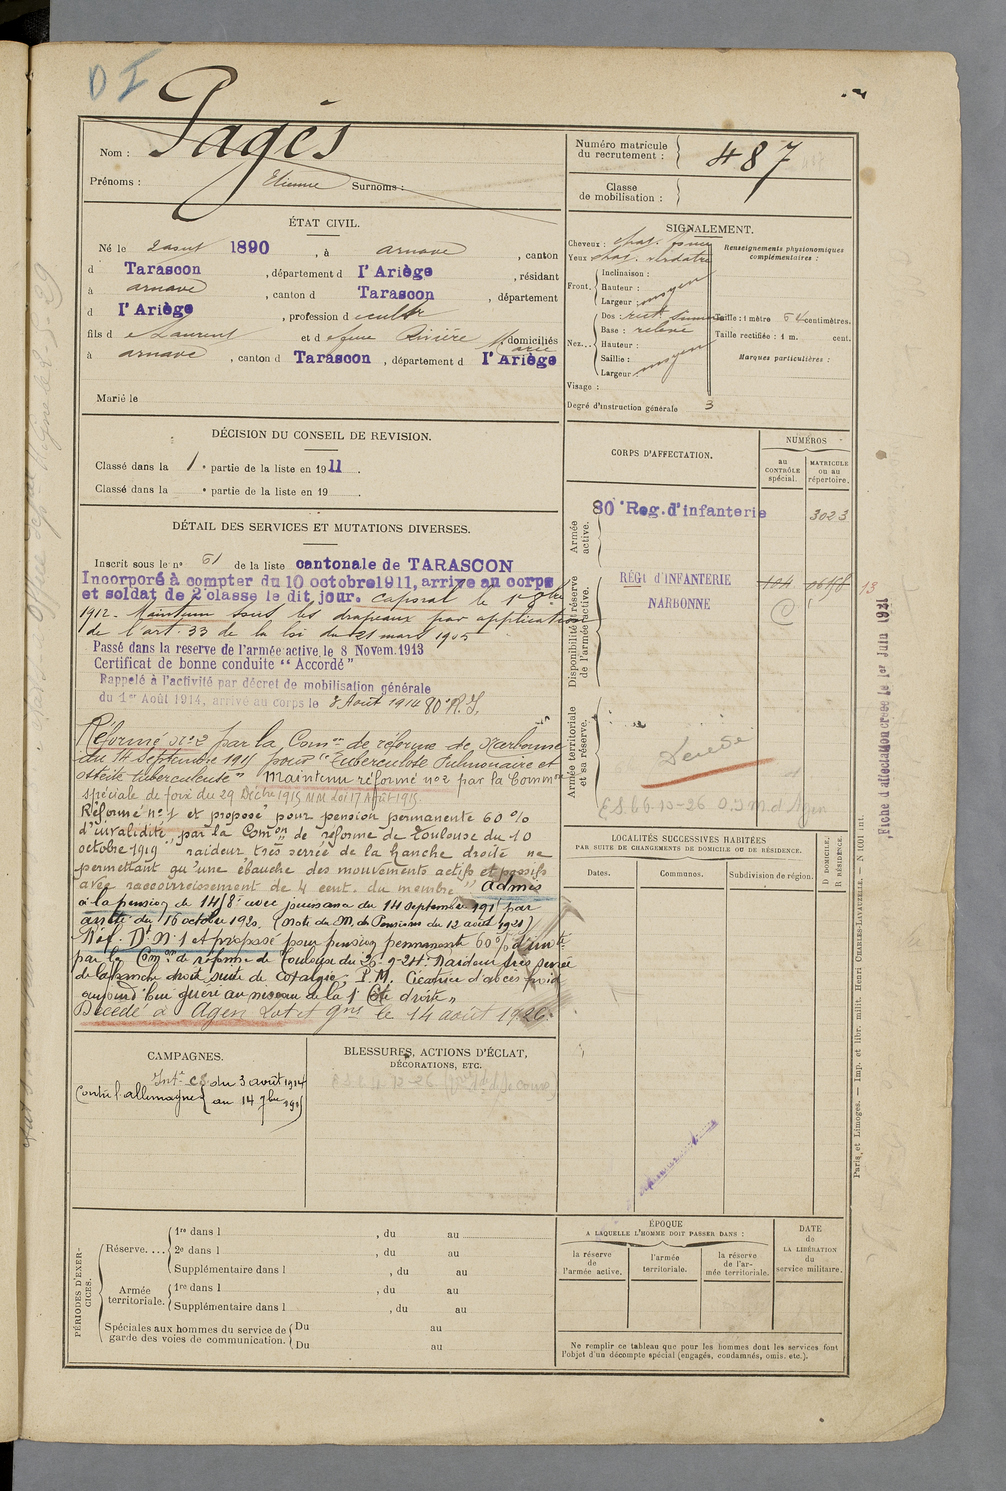 D I
Nom : Pagès
Prénoms : Etienne Surnoms :
Numéro matricule du recrutement : 487
Classe de mobilisation :
ÉTAT CIVIL.
Né le 2 aout 1890, à arnave, canton
d Tarascon, département d l'Ariège, résidant
à arnave, canton d Tarascon, département
d l'Ariège, profession d cultr
fils d e Laurent et d e feue Rivière Marie domiciliés
à arnave, canton d Tarascon, département d l'Ariège
Marié le
SIGNALEMENT.
Cheveux : chat. foncé
Yeux chat. verdatre
Front. Inclinaison :
Hauteur : moyen
Largeur :
Nez... Dos : rect. sinueux
Base : relevé
Hauteur :
Saillie : moyen
Largeur :
Visage :
Degré d'instruction générale 3
Renseignements physionomiques complémentaires :
Taille : 1 mètre 54 centimètres.
Taille rectifiée : 1 m. cent.
Marques particulières :
DÉCISION DU CONSEIL DE REVISION.
Classé dans la 1e partie de la liste en 1911.
Classé dans la e partie de la liste en 19
DÉTAIL DES SERVICES ET MUTATIONS DIVERSES.
Inscrit sous le no 51 de la liste cantonale de TARASCON
Incorporé à compter du 10 octobre 1911, arrivé au corps
et soldat de 2e classe le dit jour. Caporal le 1er 8bre
1912. Maintenu sous les drapeaux par application
de l'art. 33 de la loi du 21 mars 1905
Passé dans la reserve de l'armée active, le 8 Novem. 1913
Certificat de bonne conduite "Accordé"
Rappelé à l'activité par décret de mobilisation générale
du 1er Août 1914, arrivé au corps le 3 Août 1914 80e R.I.
Réformé no 2 par la Comon de réforme de Narbonne
du 14 Septembre 1915 pour "Tuberculose Pulmonaire et
ostéite tuberculeuse" Maintenu réformé no 2 par la Common
spéciale de foix du 29 Décbre 1915 MM Loi 17 Août 1915.
Réformé no 1 et proposé pour pension permanente 60 %
d'invalidité par la Comon de réforme de Toulouse du 10
octobre 1919 "raideur très serrée de la hanche droite ne
permettant qu'une ébauche des mouvements actifs et passifs
avec raccourcissement de 4 cent. du membre" Admis
à la pension de 1418f avec jouissance du 14 septembre 1915 par
arrêté du 16 octobre 1920. (Note du M. des Pensions du 12 août 1921)
Réf. Dt No 1 et proposé pour pension permanente 60 % d'invté
par la Comon de réforme de Toulouse du 26-9-24. Raideur très serrée
de la hanche droite suite de coxalgie. P.M. Cicatrice d'abcès froid
aujourd'hui guéri au niveau de la 1e côte droite"
Décédé à Agen Lot et Gne le 14 août 1926.
CORPS D'AFFECTATION.
NUMÉROS
au CONTRÔLE spécial.
MATRICULE ou au répertoire.
Armée active.
80e Reg. d'infanterie 3023
Disponibilité et réserve de l'armée active.
RÉGt d'INFANTERIE
NARBONNE
104
13
Armée territoriale et sa réserve.
Décédé
Fiche d'affectation créée le 1er Juin 1921
LOCALITÉS SUCCESSIVES HABITÉES
PAR SUITE DE CHANGEMENTS DE DOMICILE OU DE RÉSIDENCE.
Dates. Communes. Subdivision de région. D DOMICILE, R RÉSIDENCE.
CAMPAGNES.
Intr CS du 3 août 1914
Contre l'allemagne au 14 7bre 1915
BLESSURES, ACTIONS D'ÉCLAT,
DÉCORATIONS, ETC.
PÉRIODES D'EXERCICES.
Réserve.... 1re dans l , du au
2e dans l , du au
Supplémentaire dans l , du au
Armée territoriale. 1re dans l , du au
Supplémentaire dans l , du au
Spéciales aux hommes du service de garde des voies de communication. Du au
Du au
ÉPOQUE
A LAQUELLE L'HOMME DOIT PASSER DANS :
la réserve de l'armée active.
l'armée territoriale.
la réserve de l'armée territoriale.
DATE DE LA LIBÉRATION du service militaire.
Ne remplir ce tableau que pour les hommes dont les services font
l'objet d'un décompte spécial (engagés, condamnés, omis, etc.).
Paris et Limoges. — Imp. et libr. milit. Henri CHARLES-LAVAUZELLE. — N 1601 int.